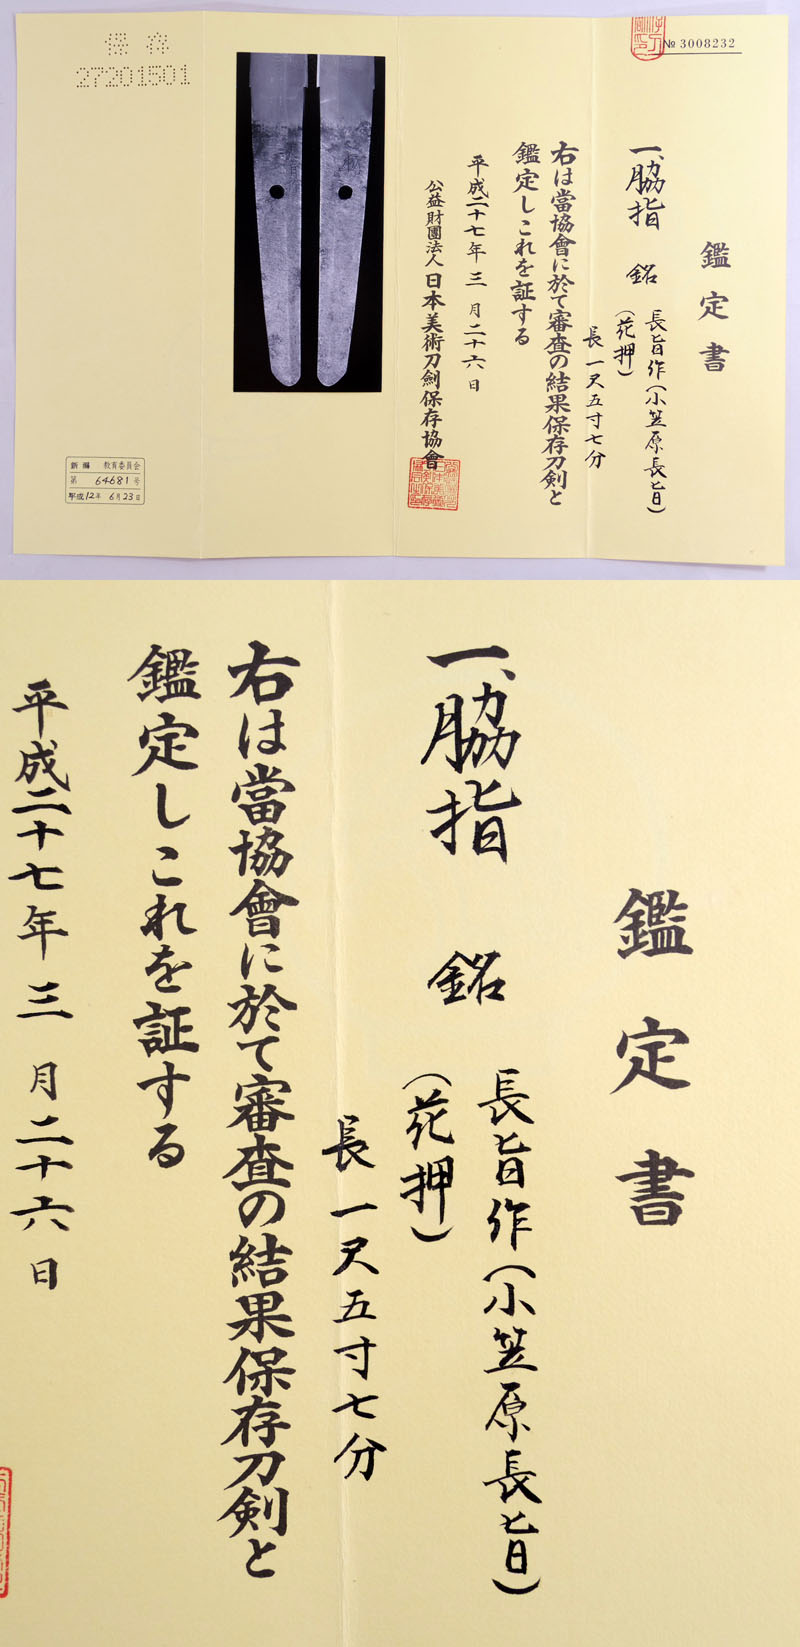 № 3008232
鑑定書
一、脇指 銘 長旨作(小笠原長旨)
(花押)
長 一尺五寸七分
右は當協會に於て審査の結果保存刀剣と
鑑定しこれを証する
平成二十七年 三 月 二十六 日
公益財團法人 日本美術刀劍保存協會
保存
27201501
新潟 教育委員会
第 64681 号
平成12年 6月23日
鑑定書
一、脇指 銘 長旨作(小笠原長旨)
(花押)
長 一尺五寸七分
右は當協會に於て審査の結果保存刀剣と
鑑定しこれを証する
平成二十七年 三 月 二十六 日